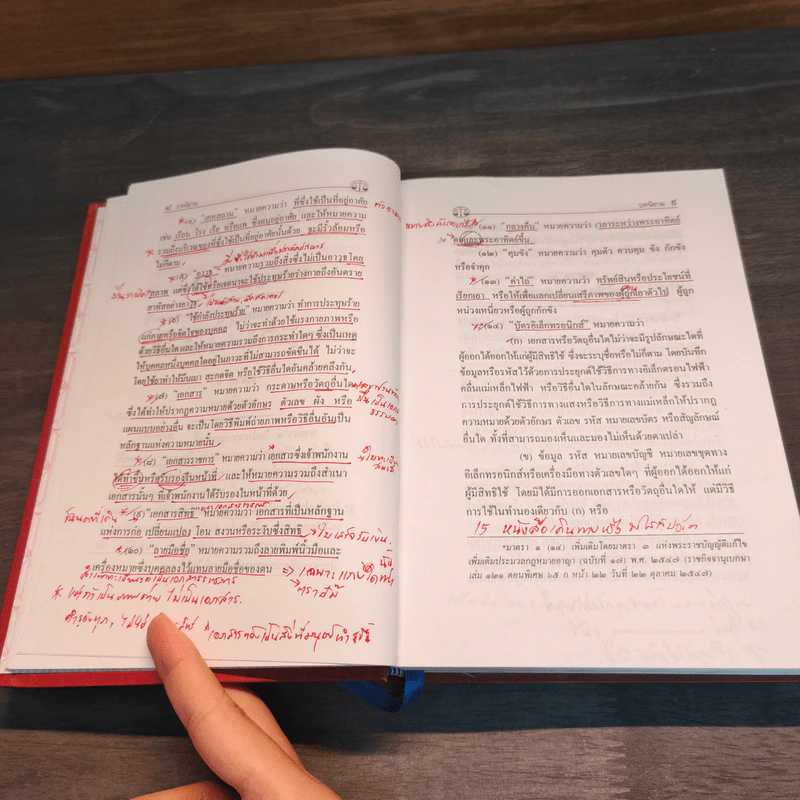 ๘ บทนิยาม
(๔) "เคหสถาน" หมายความว่า ที่ซึ่งใช้เป็นที่อยู่อาศัย
เช่น เรือน โรง เรือ หรือแพ ซึ่งคนอยู่อาศัย และให้หมายความ
รวมถึงบริเวณของที่ซึ่งใช้เป็นที่อยู่อาศัยนั้นด้วย จะมีรั้วล้อมหรือ
ไม่ก็ตาม
(๕) "อาวุธ" หมายความรวมถึงสิ่งซึ่งไม่เป็นอาวุธโดย
สภาพ แต่ซึ่งได้ใช้หรือเจตนาจะใช้ประทุษร้ายร่างกายถึงอันตราย
สาหัสอย่างอาวุธ
(๖) "ใช้กำลังประทุษร้าย" หมายความว่า ทำการประทุษร้าย
แก่กายหรือจิตใจของบุคคล ไม่ว่าจะทำด้วยใช้แรงกายภาพหรือ
ด้วยวิธีอื่นใด และให้หมายความรวมถึงการกระทำใดๆ ซึ่งเป็นเหตุ
ให้บุคคลหนึ่งบุคคลใดอยู่ในภาวะที่ไม่สามารถขัดขืนได้ ไม่ว่าจะ
โดยใช้ยาทำให้มึนเมา สะกดจิต หรือใช้วิธีอื่นใดอันคล้ายคลึงกัน
(๗) "เอกสาร" หมายความว่า กระดาษหรือวัตถุอื่นใด
ซึ่งได้ทำให้ปรากฏความหมายด้วยตัวอักษร ตัวเลข ผัง หรือ
แผนแบบอย่างอื่น จะเป็นโดยวิธีพิมพ์ ถ่ายภาพ หรือวิธีอื่นอันเป็น
หลักฐานแห่งความหมายนั้น
(๘) "เอกสารราชการ" หมายความว่า เอกสารซึ่งเจ้าพนักงาน
ได้ทำขึ้นหรือรับรองในหน้าที่ และให้หมายความรวมถึงสำเนา
เอกสารนั้นๆ ที่เจ้าพนักงานได้รับรองในหน้าที่ด้วย
(๙) "เอกสารสิทธิ" หมายความว่า เอกสารที่เป็นหลักฐาน
แห่งการก่อ เปลี่ยนแปลง โอน สงวนหรือระงับซึ่งสิทธิ
(๑๐) "ลายมือชื่อ" หมายความรวมถึงลายพิมพ์นิ้วมือและ
เครื่องหมายซึ่งบุคคลลงไว้แทนลายมือชื่อของตน
ไม่เป็นเอกสาร.
บทนิยาม ๙
(๑๑) "กลางคืน" หมายความว่า เวลาระหว่างพระอาทิตย์
ตกและพระอาทิตย์ขึ้น
(๑๒) "คุมขัง" หมายความว่า คุมตัว ควบคุม ขัง กักขัง
หรือจำคุก
(๑๓) "ค่าไถ่" หมายความว่า ทรัพย์สินหรือประโยชน์ที่
เรียกเอา หรือให้เพื่อแลกเปลี่ยนเสรีภาพของผู้ถูกเอาตัวไป ผู้ถูก
หน่วงเหนี่ยวหรือผู้ถูกกักขัง
*(๑๔) "บัตรอิเล็กทรอนิกส์" หมายความว่า
(ก) เอกสารหรือวัตถุอื่นใดไม่ว่าจะมีรูปลักษณะใดที่
ผู้ออกได้ออกให้แก่ผู้มีสิทธิใช้ ซึ่งจะระบุชื่อหรือไม่ก็ตาม โดยบันทึก
ข้อมูลหรือรหัสไว้ด้วยการประยุกต์ใช้วิธีการทางอิเล็กตรอนไฟฟ้า
คลื่นแม่เหล็กไฟฟ้า หรือวิธีอื่นใดในลักษณะคล้ายกัน ซึ่งรวมถึง
การประยุกต์ใช้วิธีการทางแสงหรือวิธีการทางแม่เหล็กให้ปรากฏ
ความหมายด้วยตัวอักษร ตัวเลข รหัส หมายเลขบัตร หรือสัญลักษณ์
อื่นใด ทั้งที่สามารถมองเห็นและมองไม่เห็นด้วยตาเปล่า
(ข) ข้อมูล รหัส หมายเลขบัญชี หมายเลขชุดทาง
อิเล็กทรอนิกส์หรือเครื่องมือทางตัวเลขใดๆ ที่ผู้ออกได้ออกให้แก่
ผู้มีสิทธิใช้ โดยมิได้มีการออกเอกสารหรือวัตถุอื่นใดให้ แต่มีวิธี
การใช้ในทำนองเดียวกับ (ก) หรือ
15 หนังสือเดินทาง หรือ พาสปอร์ต
*มาตรา ๑ (๑๔) เพิ่มเติมโดยมาตรา ๓ แห่งพระราชบัญญัติแก้ไข
เพิ่มเติมประมวลกฎหมายอาญา (ฉบับที่ ๑๗) พ.ศ. ๒๕๔๗ (ราชกิจจานุเบกษา
เล่ม ๑๒๑ ตอนพิเศษ ๖๕ ก หน้า ๒๒ วันที่ ๒๒ ตุลาคม ๒๕๔๗)